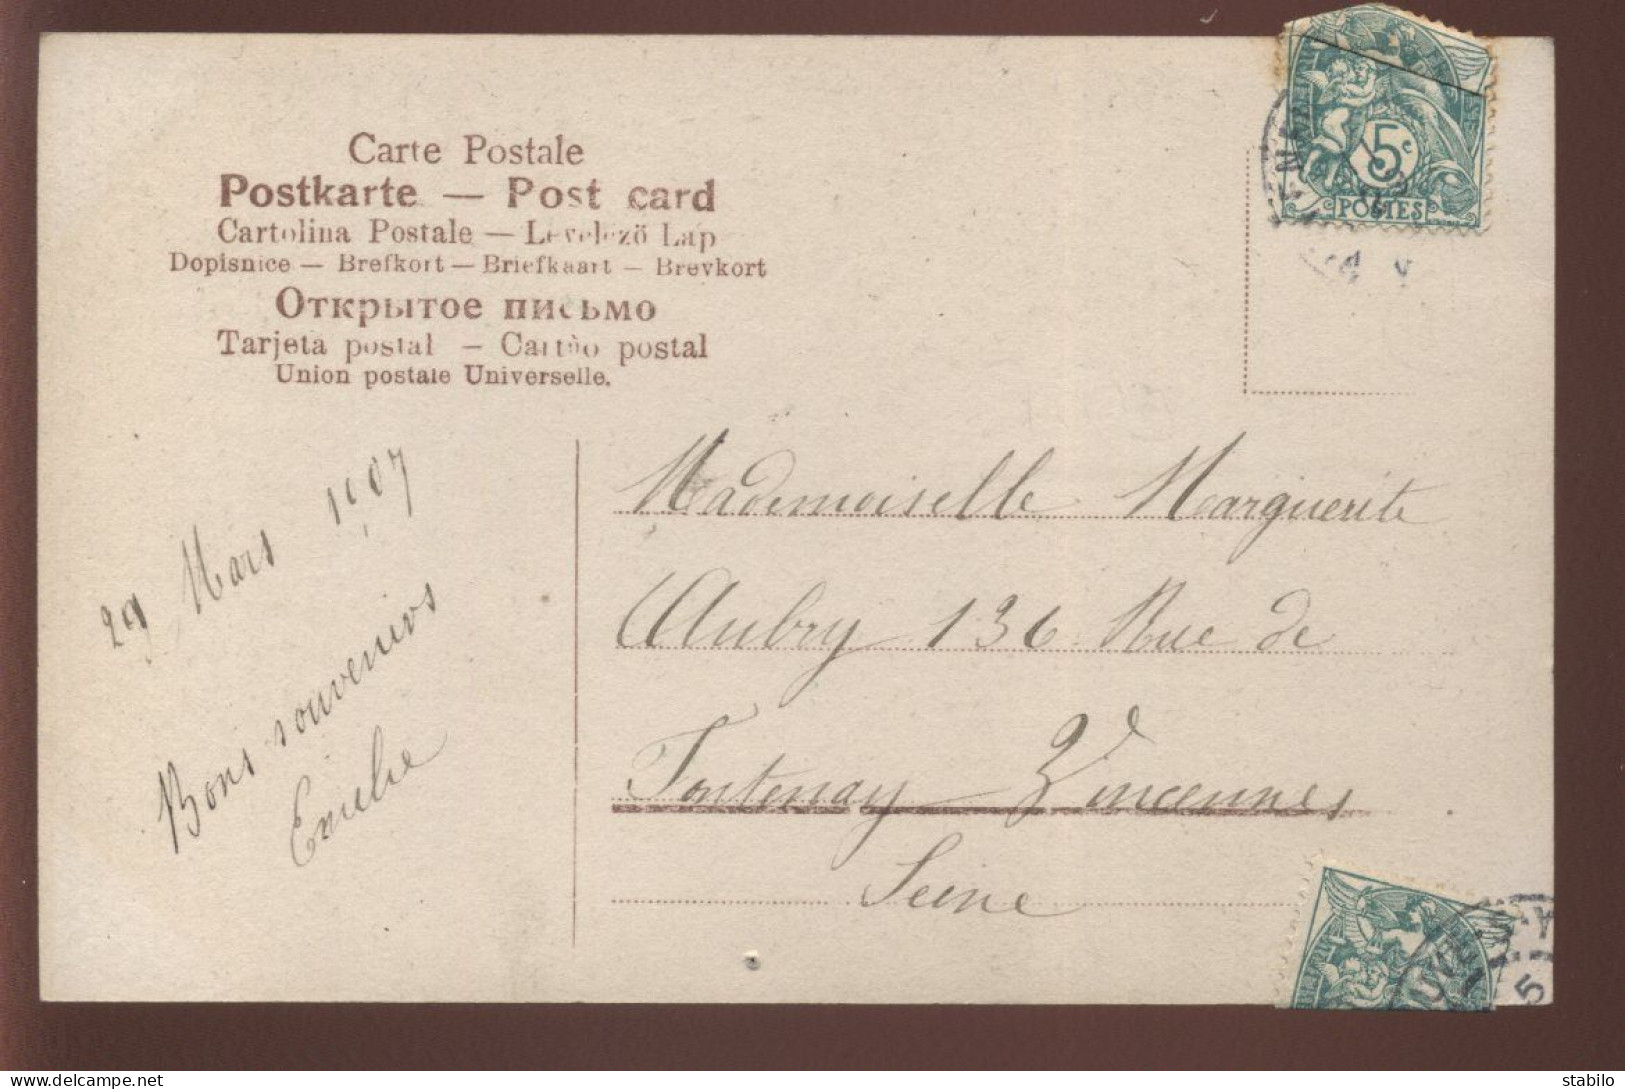 Carte Postale
Postkarte — Post card
Cartolina Postale — Levelező Lap
Dopisnice — Brefkort — Briefkaart — Brevkort
Открытое письмо
Tarjeta postal — Cartão postal
Union postale Universelle.
5c
POSTES
29 Mars 1907
Bons souvenirs
Emelie
Mademoiselle Marguerite
Aubry 136 Rue de
Fontenay Vincennes
Seine
5
stabilo